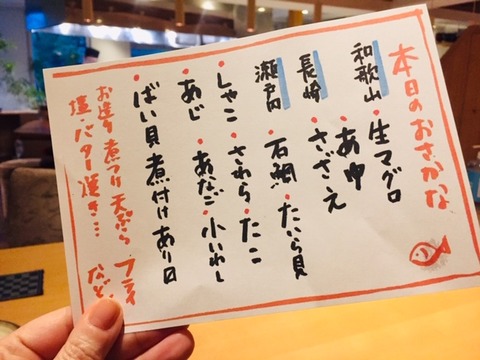 本日のおさかな
和歌山 ・生マグロ
長崎 ・さざえ
瀬戸内 ・石鯛 ・たいら貝
・しゃこ ・さわら ・たこ
・あじ ・あなご ・小いわし
・ばい貝 煮付けあり〼
お造り 煮つけ 天ぷら フライ
塩バター焼き… など